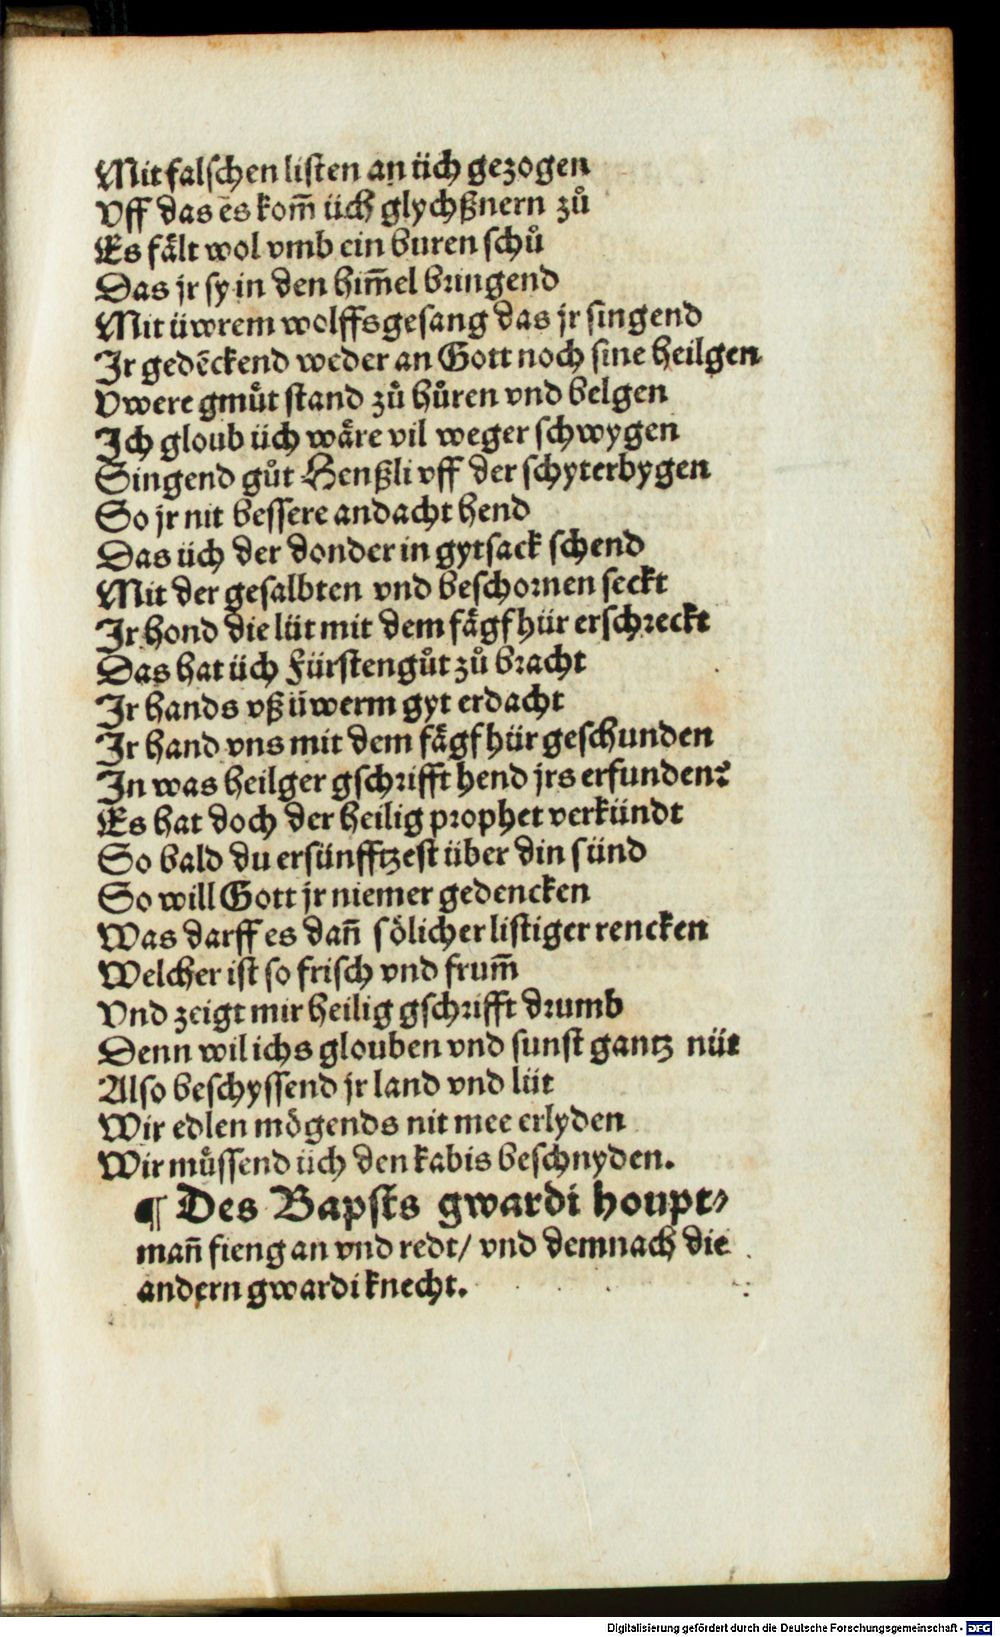 Mit falschen listen an üch gezogen
Vff das es kom̄ üch glychßnern zů
Es fält wol vmb ein buren schů
Das jr sy in den him̄el bringend
Mit üwrem wolffsgesang das jr singend
Ir gedēckend weder an Gott noch sine heilgen
Vwere gmůt stand zů hůren vnd belgen
Ich gloub üch wäre vil weger schwygen
Singend gůt Henßli vff der schyterbygen
So jr nit bessere andacht hend
Das üch der donder in gytsack schend
Mit der gesalbten vnd beschornen seckt
Ir hond die lüt mit dem fägfhür erschreckt
Das hat üch Fürstengůt zů bracht
Ir hands vß üwerm gyt erdacht
Ir hand vns mit dem fägfhür geschunden
In was heilger gschrifft hend jrs erfunden?
Es hat doch der heilig prophet verkündt
So bald du ersünfftzest über din sünd
So will Gott jr niemer gedencken
Was darff es dañ sölicher listiger rencken
Welcher ist so frisch vnd frum̄
Vnd zeigt mir heilig gschrifft drumb
Denn wil ichs glouben vnd sunst gantz nüt
Also beschyssend jr land vnd lüt
Wir edlen mögends nit mee erlyden
Wir müssend üch den kabis beschnyden.
¶ Des Bapsts gwardi houpt⸗
mañ fieng an vnd redt/ vnd demnach die
andern gwardiknecht.
Digitalisierung gefördert durch die Deutsche Forschungsgemeinschaft - DFG